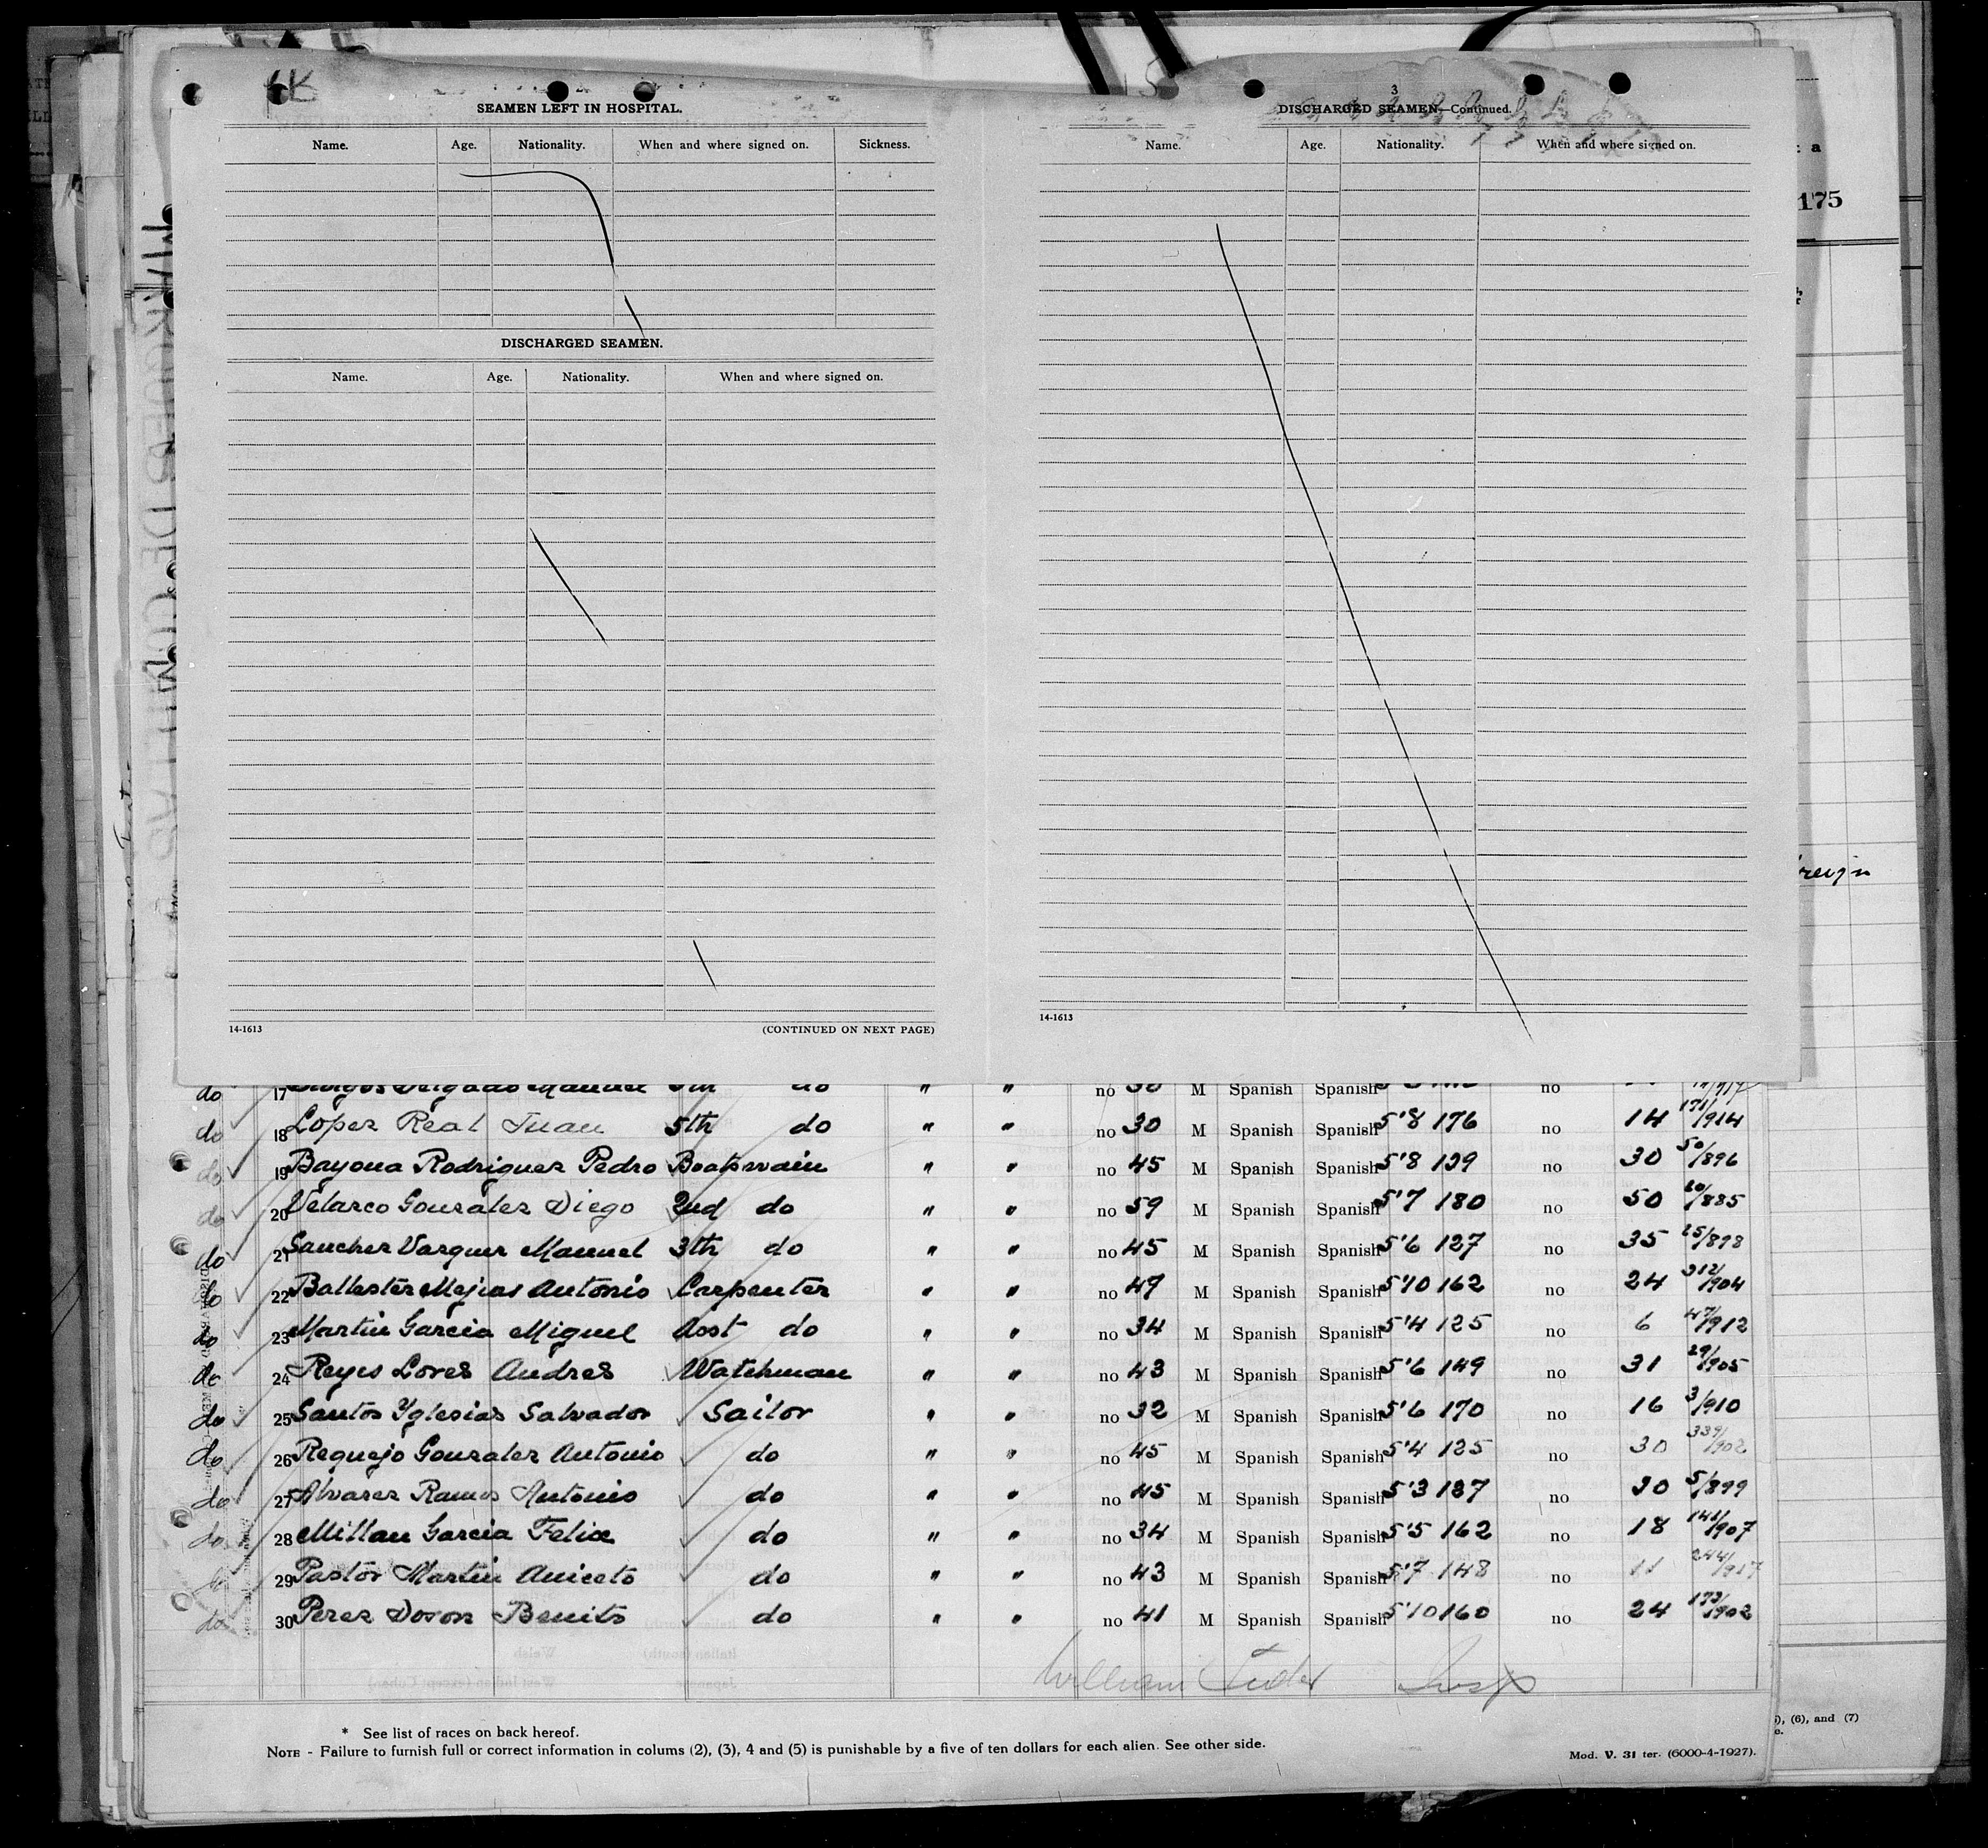 SEAMEN LEFT IN HOSPITAL.
Name. Age. Nationality. When and where signed on. Sickness.
DISCHARGED SEAMEN.
Name. Age. Nationality. When and where signed on.
14-1613 (CONTINUED ON NEXT PAGE)
3
DISCHARGED SEAMEN—Continued.
Name. Age. Nationality. When and where signed on.
14-1613
175
do 17 do " " no M Spanish Spanish no
do 18 Lopez Real Juan 5th do " " no 30 M Spanish Spanish 5'8 176 no 14 171/914
do 19 Bayona Rodriguez Pedro Boatswain " " no 45 M Spanish Spanish 5'8 139 no 30 50/896
do 20 Velarco Gonzalez Diego 2nd do " " no 59 M Spanish Spanish 5'7 180 no 50 /885
do 21 Sanchez Vazquez Manuel 3th do " " no 45 M Spanish Spanish 5'6 127 no 35 25/898
do 22 Ballester Mejias Antonio Carpenter " " no 47 M Spanish Spanish 5'10 162 no 24 312/904
do 23 Martin Garcia Miguel Asst do " " no 34 M Spanish Spanish 5'4 125 no 6 47/912
do 24 Reyes Lores Andres Watchman " " no 43 M Spanish Spanish 5'6 149 no 31 29/905
do 25 Santos Yglesias Salvador Sailor " " no 32 M Spanish Spanish 5'6 170 no 16 3/910
do 26 Requejo Gonzalez Antonio do " " no 45 M Spanish Spanish 5'4 125 no 30 339/902
do 27 Alvarez Ramos Antonio do " " no 45 M Spanish Spanish 5'3 137 no 30 5/899
do 28 Millan Garcia Felix do " " no 34 M Spanish Spanish 5'5 162 no 18 141/907
29 Pastor Martin Aniceto do " " no 43 M Spanish Spanish 5'7 148 no 11 244/917
do 30 Perez Doson Benito do " " no 41 M Spanish Spanish 5'10 160 no 24 173/902
William
* See list of races on back hereof.
NOTE - Failure to furnish full or correct information in colums (2), (3), 4 and (5) is punishable by a five of ten dollars for each alien. See other side.
Mod. V. 31 ter. (6000-4-1927).
(6), and (7)